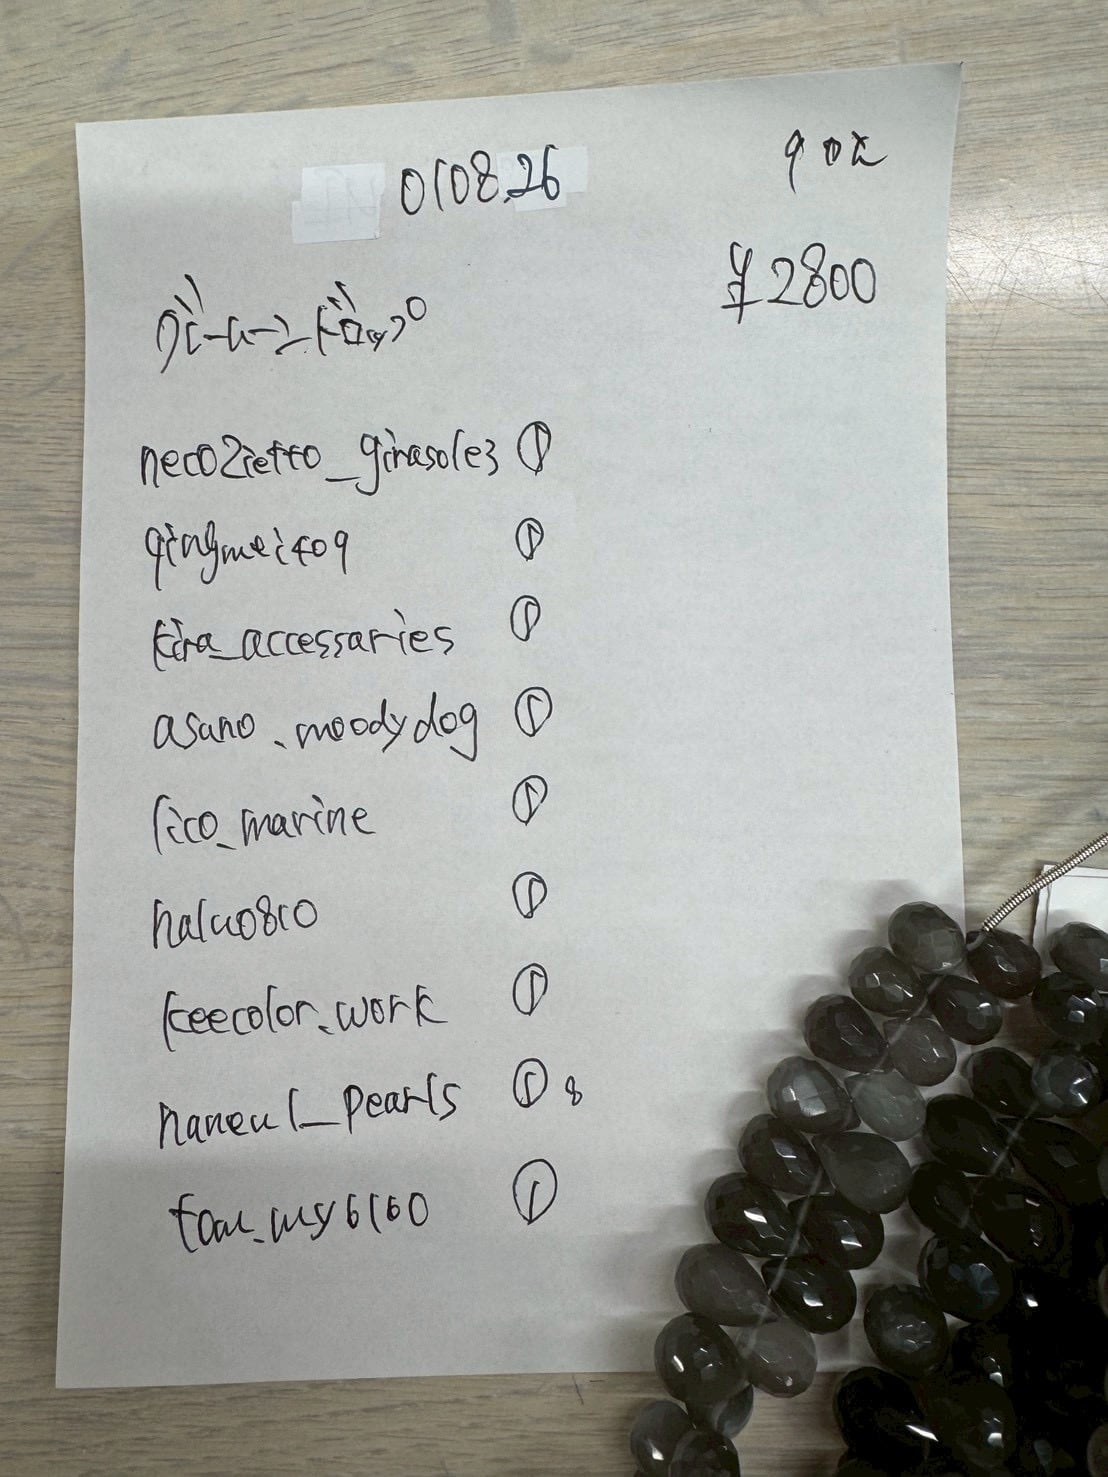 0108.26
90%
¥2800
neco2ietto_girasole3 ①
qingmei409 ①
kira_accessaries ①
asano.moodydog ①
rico_marine ①
halu0810 ①
keecolor.work ①
haneul_pearls ① 8
①